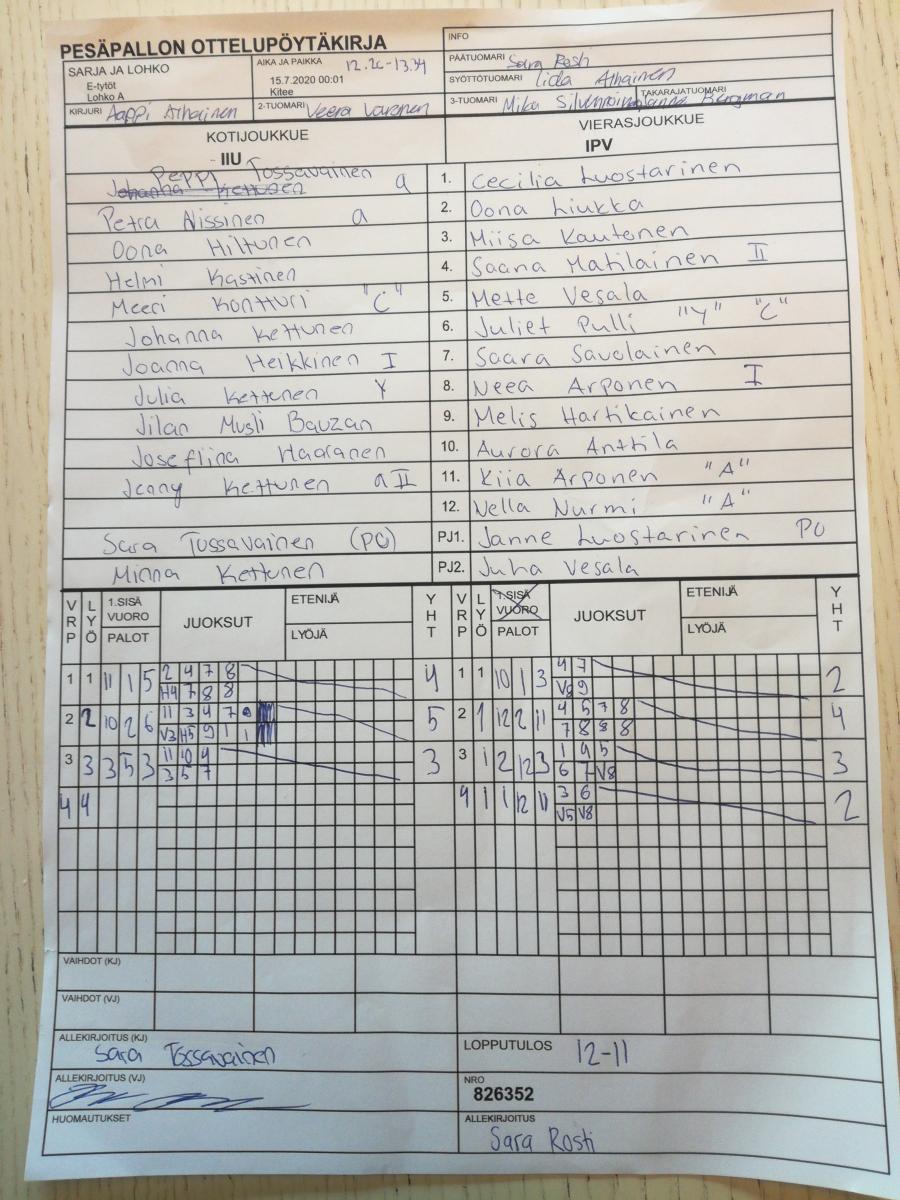 PESÄPALLON OTTELUPÖYTÄKIRJA
INFO
SARJA JA LOHKO
E-tytöt
Lohko A
AIKA JA PAIKKA 12.26-13.34
15.7.2020 00:01
Kitee
PÄÄTUOMARI Sara Rosti
SYÖTTÖTUOMARI Iida Aihainen
KIRJURI Aihainen
2-TUOMARI Veera
3-TUOMARI Mika
TAKARAJATUOMARI Bergman
KOTIJOUKKUE
IIU
VIERASJOUKKUE
IPV
Peppi Tossavainen a
Johanna Kettunen
1. Cecilia Luostarinen
Petra Nissinen a
2. Oona Liukka
Oona Hiltunen
3. Miisa Kautonen
Helmi Kastinen
4. Saana Matilainen II
Meeri Kontturi "C"
5. Mette Vesala
Johanna Kettunen
6. Juliet Pulli "Y" "C"
Joanna Heikkinen I
7. Saara Savolainen
Julia Kettunen Y
8. Neea Arponen I
Jilan Musli Bauzan
9. Melis Hartikainen
Joseflina Haaranen
10. Aurora Anttila
Jenny Kettunen a II
11. Kiia Arponen "A"
12. Vella Nurmi "A"
Sara Tossavainen (PO)
PJ1. Janne Luostarinen PO
Minna Kettunen
PJ2. Juha Vesala
VRP LYÖ 1.SISÄ VUORO PALOT JUOKSUT ETENIJÄ LYÖJÄ YHT
VRP LYÖ 1.SISÄ VUORO PALOT JUOKSUT ETENIJÄ LYÖJÄ YHT
1 1 11 1 5 2 4 7 8 4
H4 7 8 8
1 1 10 1 3 4 7 2
V8 9
2 2 10 2 6 11 3 4 7 9 5
V3 H5 9 1 1
2 1 12 2 11 4 5 7 8 4
7 8 8 8
3 3 3 5 3 11 10 9 3
3 5 7
3 1 2 12 3 1 4 5 3
6 7 V8
4 4
4 1 1 12 11 3 6 2
V5 V8
VAIHDOT (KJ)
VAIHDOT (VJ)
ALLEKIRJOITUS (KJ)
Sara Tossavainen
LOPPUTULOS 12-11
ALLEKIRJOITUS (VJ)
NRO
826352
HUOMAUTUKSET
ALLEKIRJOITUS
Sara Rosti